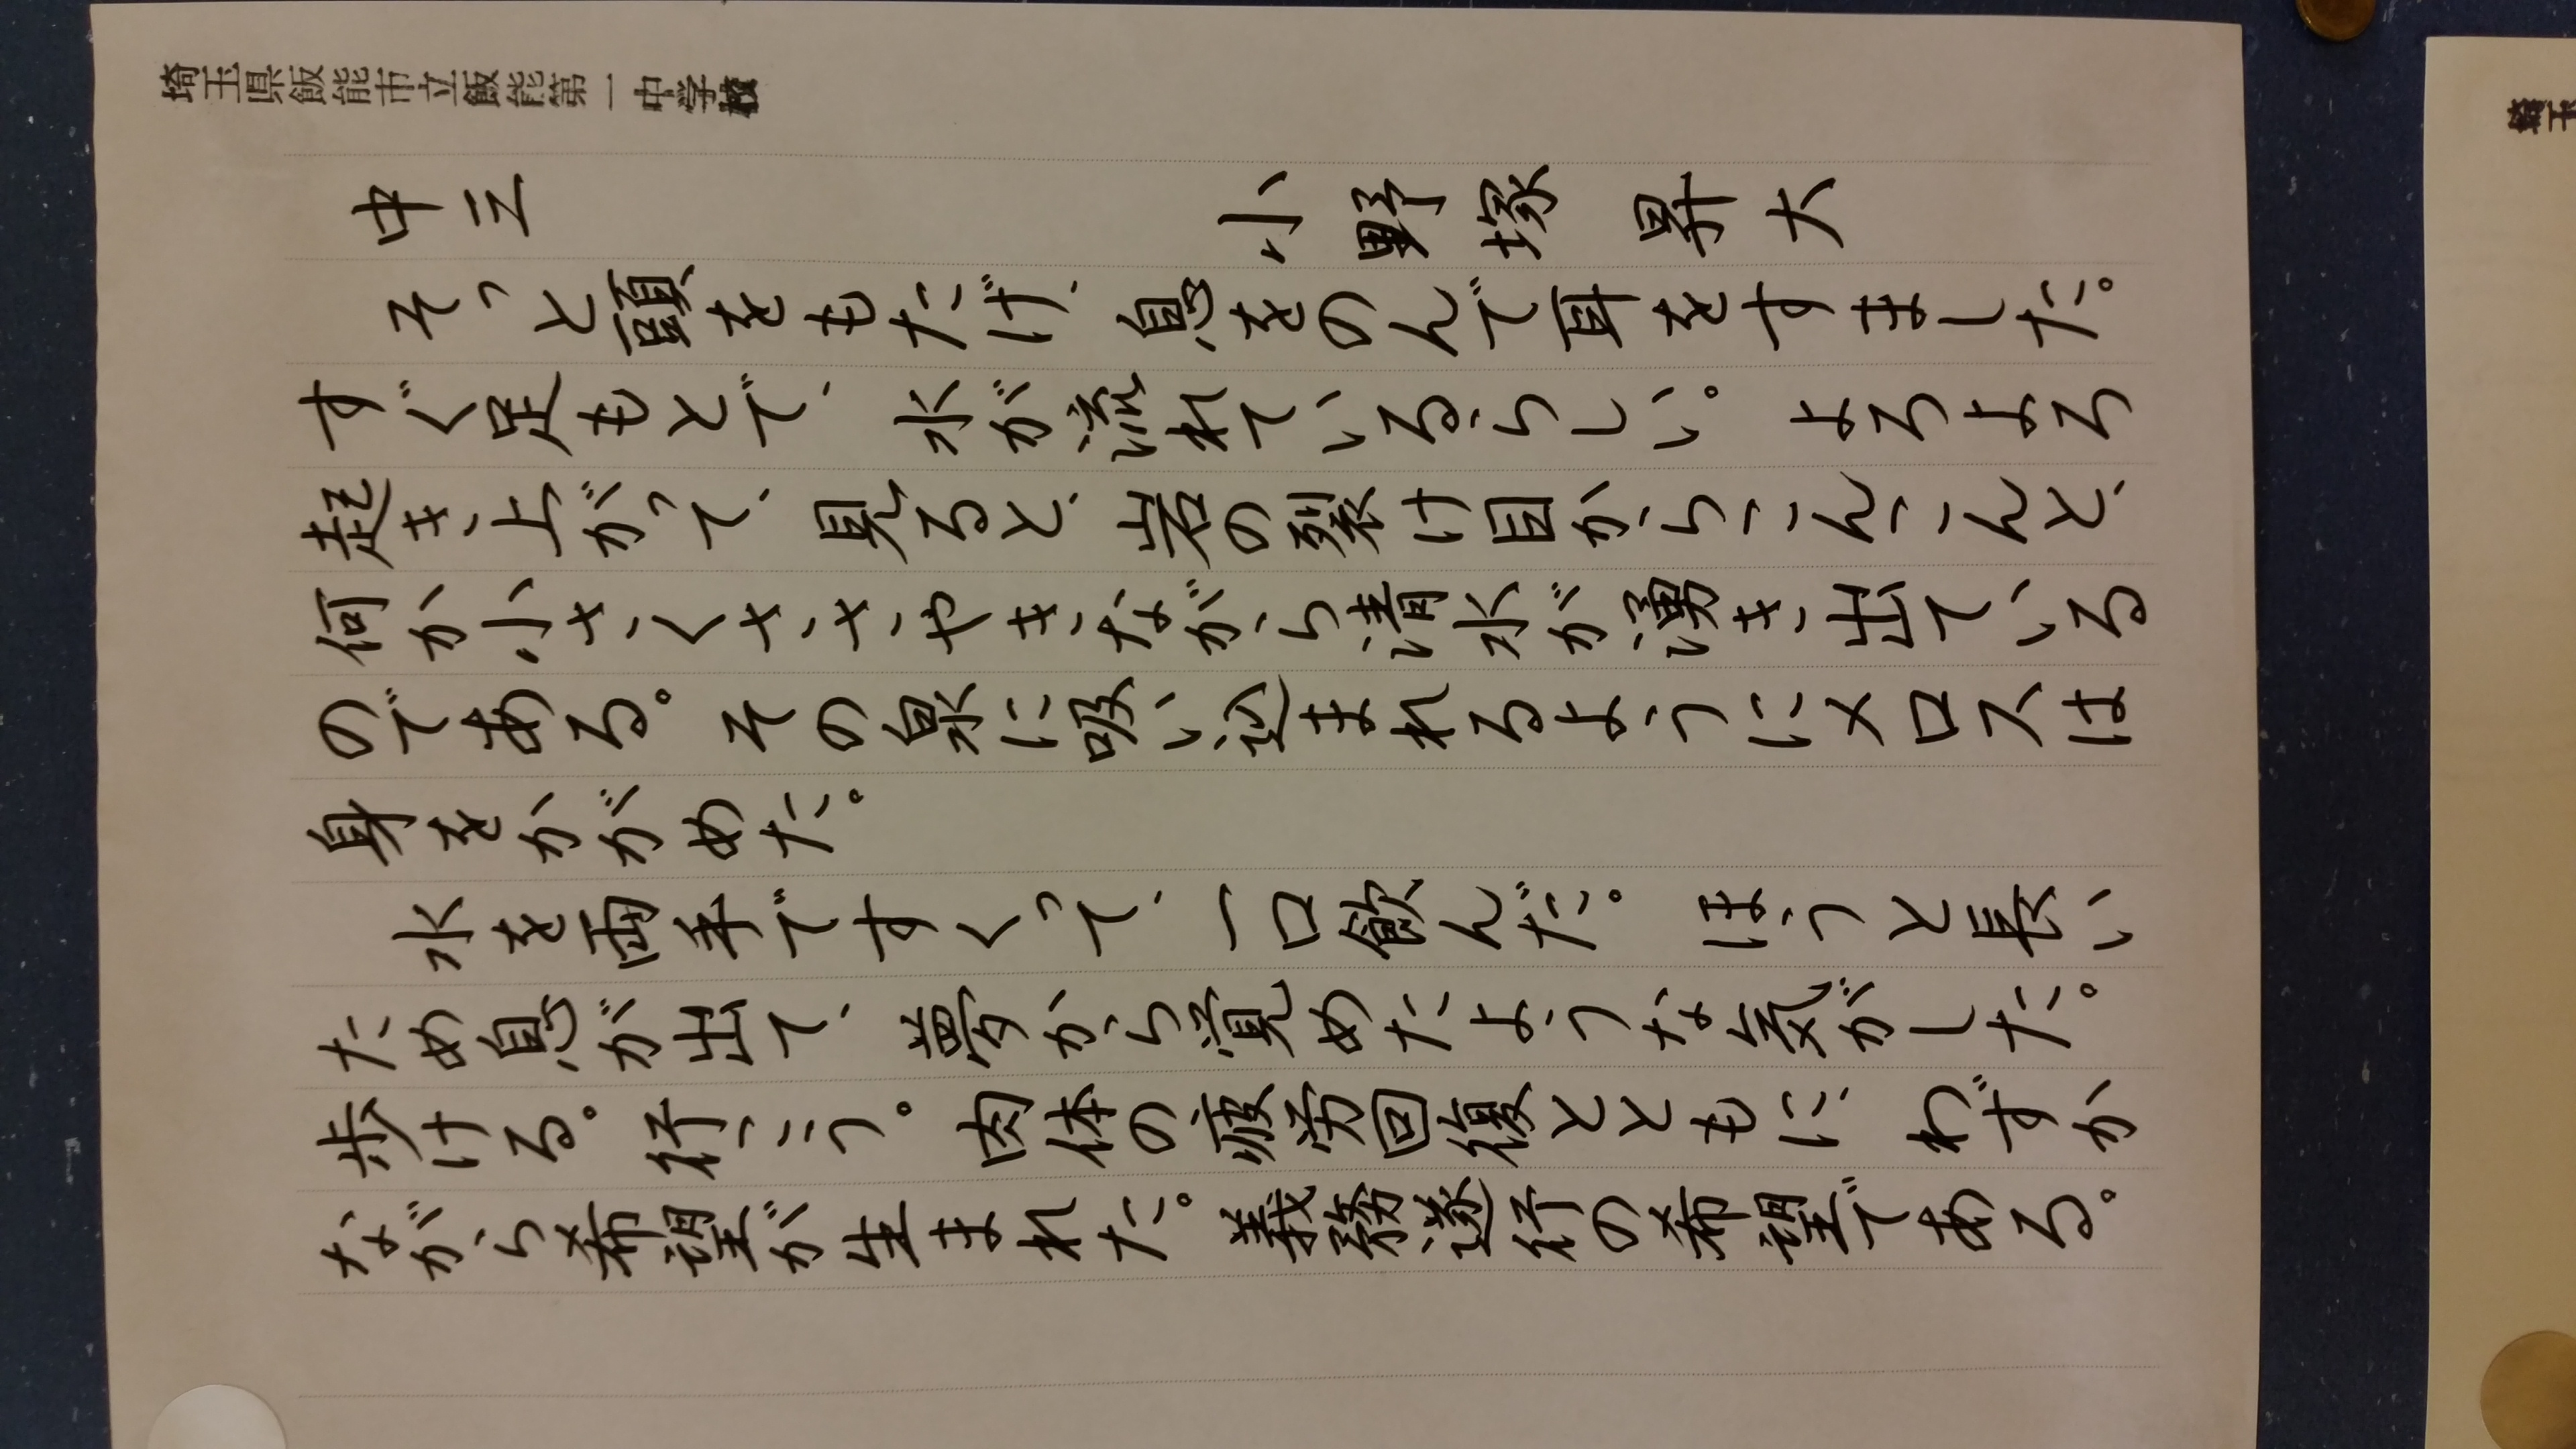 埼玉県飯能市立飯能第一中学校
中三 小野塚 昇大
そっと頭をもたげ、息をのんで耳をすました。
すぐ足もとで、水が流れているらしい。よろよろ
起き上がって、見ると、岩の裂け目からこんこんと、
何か小さくささやきながら清水が湧き出ている
のである。その泉に吸い込まれるようにメロスは
身をかがめた。
水を両手ですくって、一口飲んだ。ほうと長い
ため息が出て、夢から覚めたような気がした。
歩ける。行こう。肉体の疲労回復とともに、わずか
ながら希望が生まれた。義務遂行の希望である。
埼玉